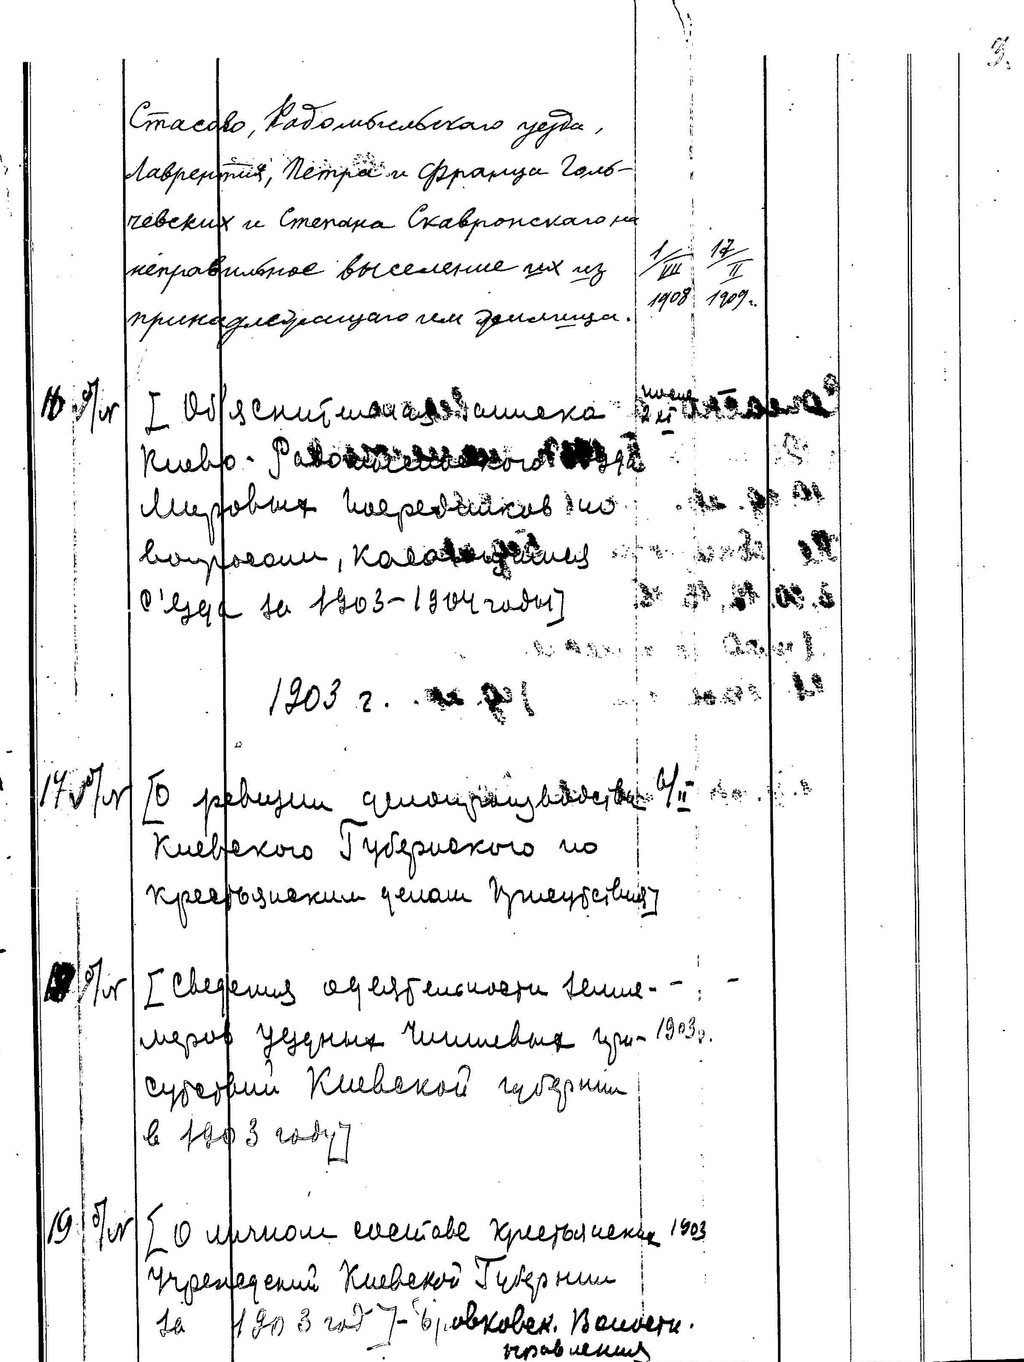 3.
Стасово, Радомысльскаго уезда,
Лаврентия, Петра и Франца Голь-
чевских и Степана Скавронскаго на
неправильное выселение их из
принадлежащаго им жилища. 1/VIII 1908 17/II 1909 г.
16 б/№ [Объяснительная записка
Киево-Радомысльского
Мировых Посредников по
вопросам, касающимся
с'езда за 1903-1904 годы]
1903 г.
17 б/№ [О ревизии делопроизводства 6/II
Киевского Губернского по
крестьянским делам Присутствия]
18 б/№ [Сведения о деятельности земле- - -
меров уездных чиншевых при- 1903 г.
сутствий Киевской губернии
в 1903 году]
19 б/№ [О личном составе крестьянских 1903
Учреждений Киевской Губернии
за 1903 год] - Волости.
правления